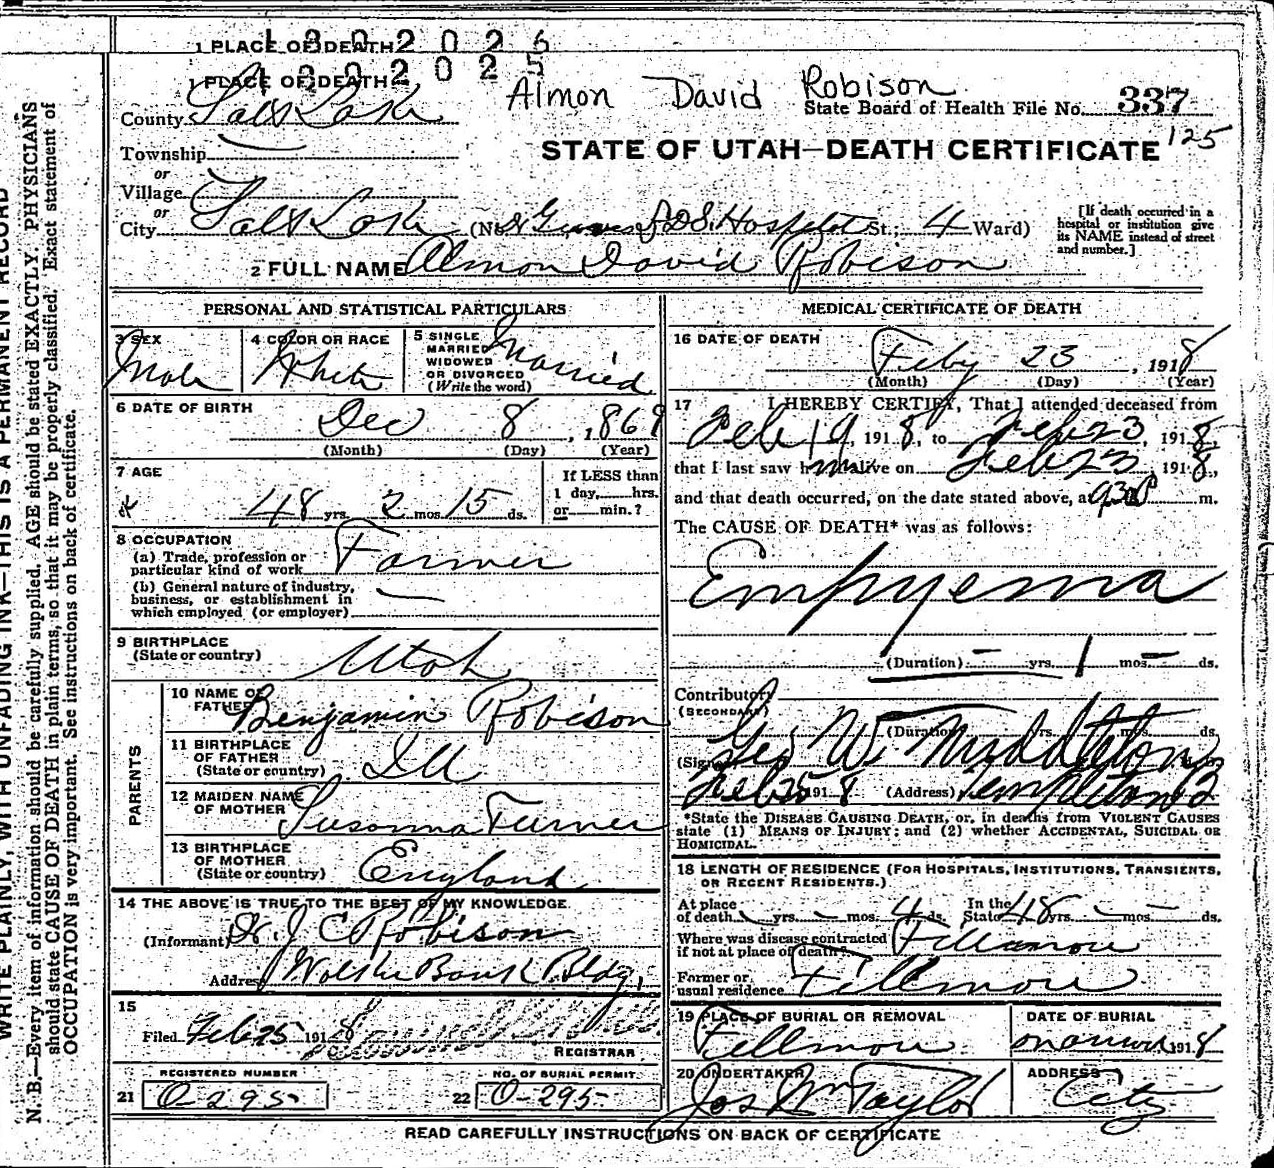 1 PLACE OF DEATH
1302026
1 PLACE OF DEATH
1302025
Almon David Robison
State Board of Health File No. 337
125
County Salt Lake
STATE OF UTAH—DEATH CERTIFICATE
Township
or
Village
or
City Salt Lake (No. L.D.S. Hospital St.; 4 Ward)
[If death occurred in a hospital or institution give its NAME instead of street and number.]
2 FULL NAME Almon David Robison
PERSONAL AND STATISTICAL PARTICULARS
3 SEX
Male
4 COLOR OR RACE
White
5 SINGLE
MARRIED
WIDOWED
OR DIVORCED
(Write the word)
Married
6 DATE OF BIRTH
Dec 8, 1869
(Month) (Day) (Year)
7 AGE
48 yrs. 2 mos. 15 ds.
If LESS than
1 day, hrs.
or min.?
8 OCCUPATION
(a) Trade, profession or
particular kind of work Farmer
(b) General nature of industry,
business, or establishment in
which employed (or employer) —
9 BIRTHPLACE
(State or country) Utah
PARENTS
10 NAME OF
FATHER Benjamin Robison
11 BIRTHPLACE
OF FATHER
(State or country) Ill
12 MAIDEN NAME
OF MOTHER Susanna Turner
13 BIRTHPLACE
OF MOTHER
(State or country) England
14 THE ABOVE IS TRUE TO THE BEST OF MY KNOWLEDGE.
(Informant) Dr. J C Robison
Address Walker Bank Bldg.
15
Filed Feb 25 1918
REGISTRAR
REGISTERED NUMBER
21 O-295
NO. OF BURIAL PERMIT
22 O-295
MEDICAL CERTIFICATE OF DEATH
16 DATE OF DEATH
Feby 23, 1918
(Month) (Day) (Year)
17 I HEREBY CERTIFY, That I attended deceased from
Feb 19, 1918, to Feb 23, 1918,
that I last saw him alive on Feb 23, 1918,
and that death occurred, on the date stated above, at 930 P m.
The CAUSE OF DEATH* was as follows:
Empyema
(Duration) — yrs. 1 mos. — ds.
Contributory
(SECONDARY)
(Duration) yrs. mos. ds.
(Signed) Geo W. Middleton
Feb 25 1918 (Address) Templeton B
*State the DISEASE CAUSING DEATH, or, in deaths from VIOLENT CAUSES
state (1) MEANS OF INJURY; and (2) whether ACCIDENTAL, SUICIDAL OR
HOMICIDAL.
18 LENGTH OF RESIDENCE (FOR HOSPITALS, INSTITUTIONS, TRANSIENTS,
OR RECENT RESIDENTS.)
At place
of death — yrs. — mos. 4 ds.
In the
State 48 yrs. — mos. — ds.
Where was disease contracted
if not at place of death? Fillmore
Former or
usual residence Fillmore
19 PLACE OF BURIAL OR REMOVAL
Fillmore
DATE OF BURIAL
1918
20 UNDERTAKER
Jos Wm Taylor
ADDRESS
City
READ CAREFULLY INSTRUCTIONS ON BACK OF CERTIFICATE
WRITE PLAINLY, WITH UNFADING INK—THIS IS A PERMANENT RECORD
N. B.—Every item of information should be carefully supplied. AGE should be stated EXACTLY. PHYSICIANS
should state CAUSE OF DEATH in plain terms, so that it may be properly classified. Exact statement of
OCCUPATION is very important. See instructions on back of certificate.